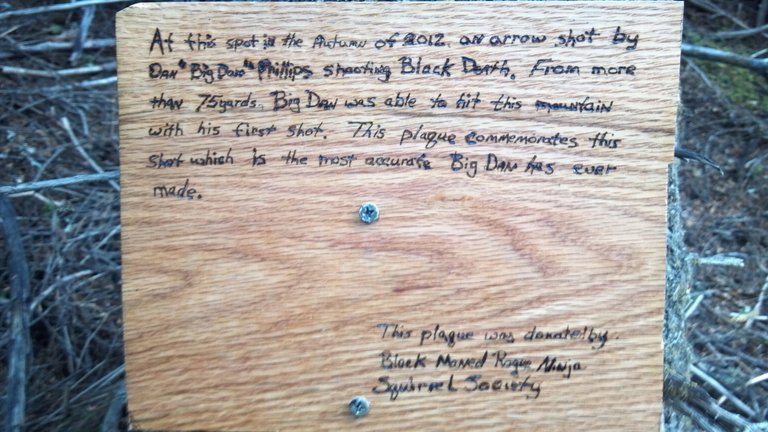 At this spot in the Autumn of 2012, an arrow shot by
Dan "Big Dan" Phillips shooting Black Death. From more
than 75yards, Big Dan was able to hit this mountain
with his first shot. This plaque commemorates this
shot which is the most accurate Big Dan has ever
made.
This plaque was donated by.
Black Maned Rogue Ninja
Squirrel Society